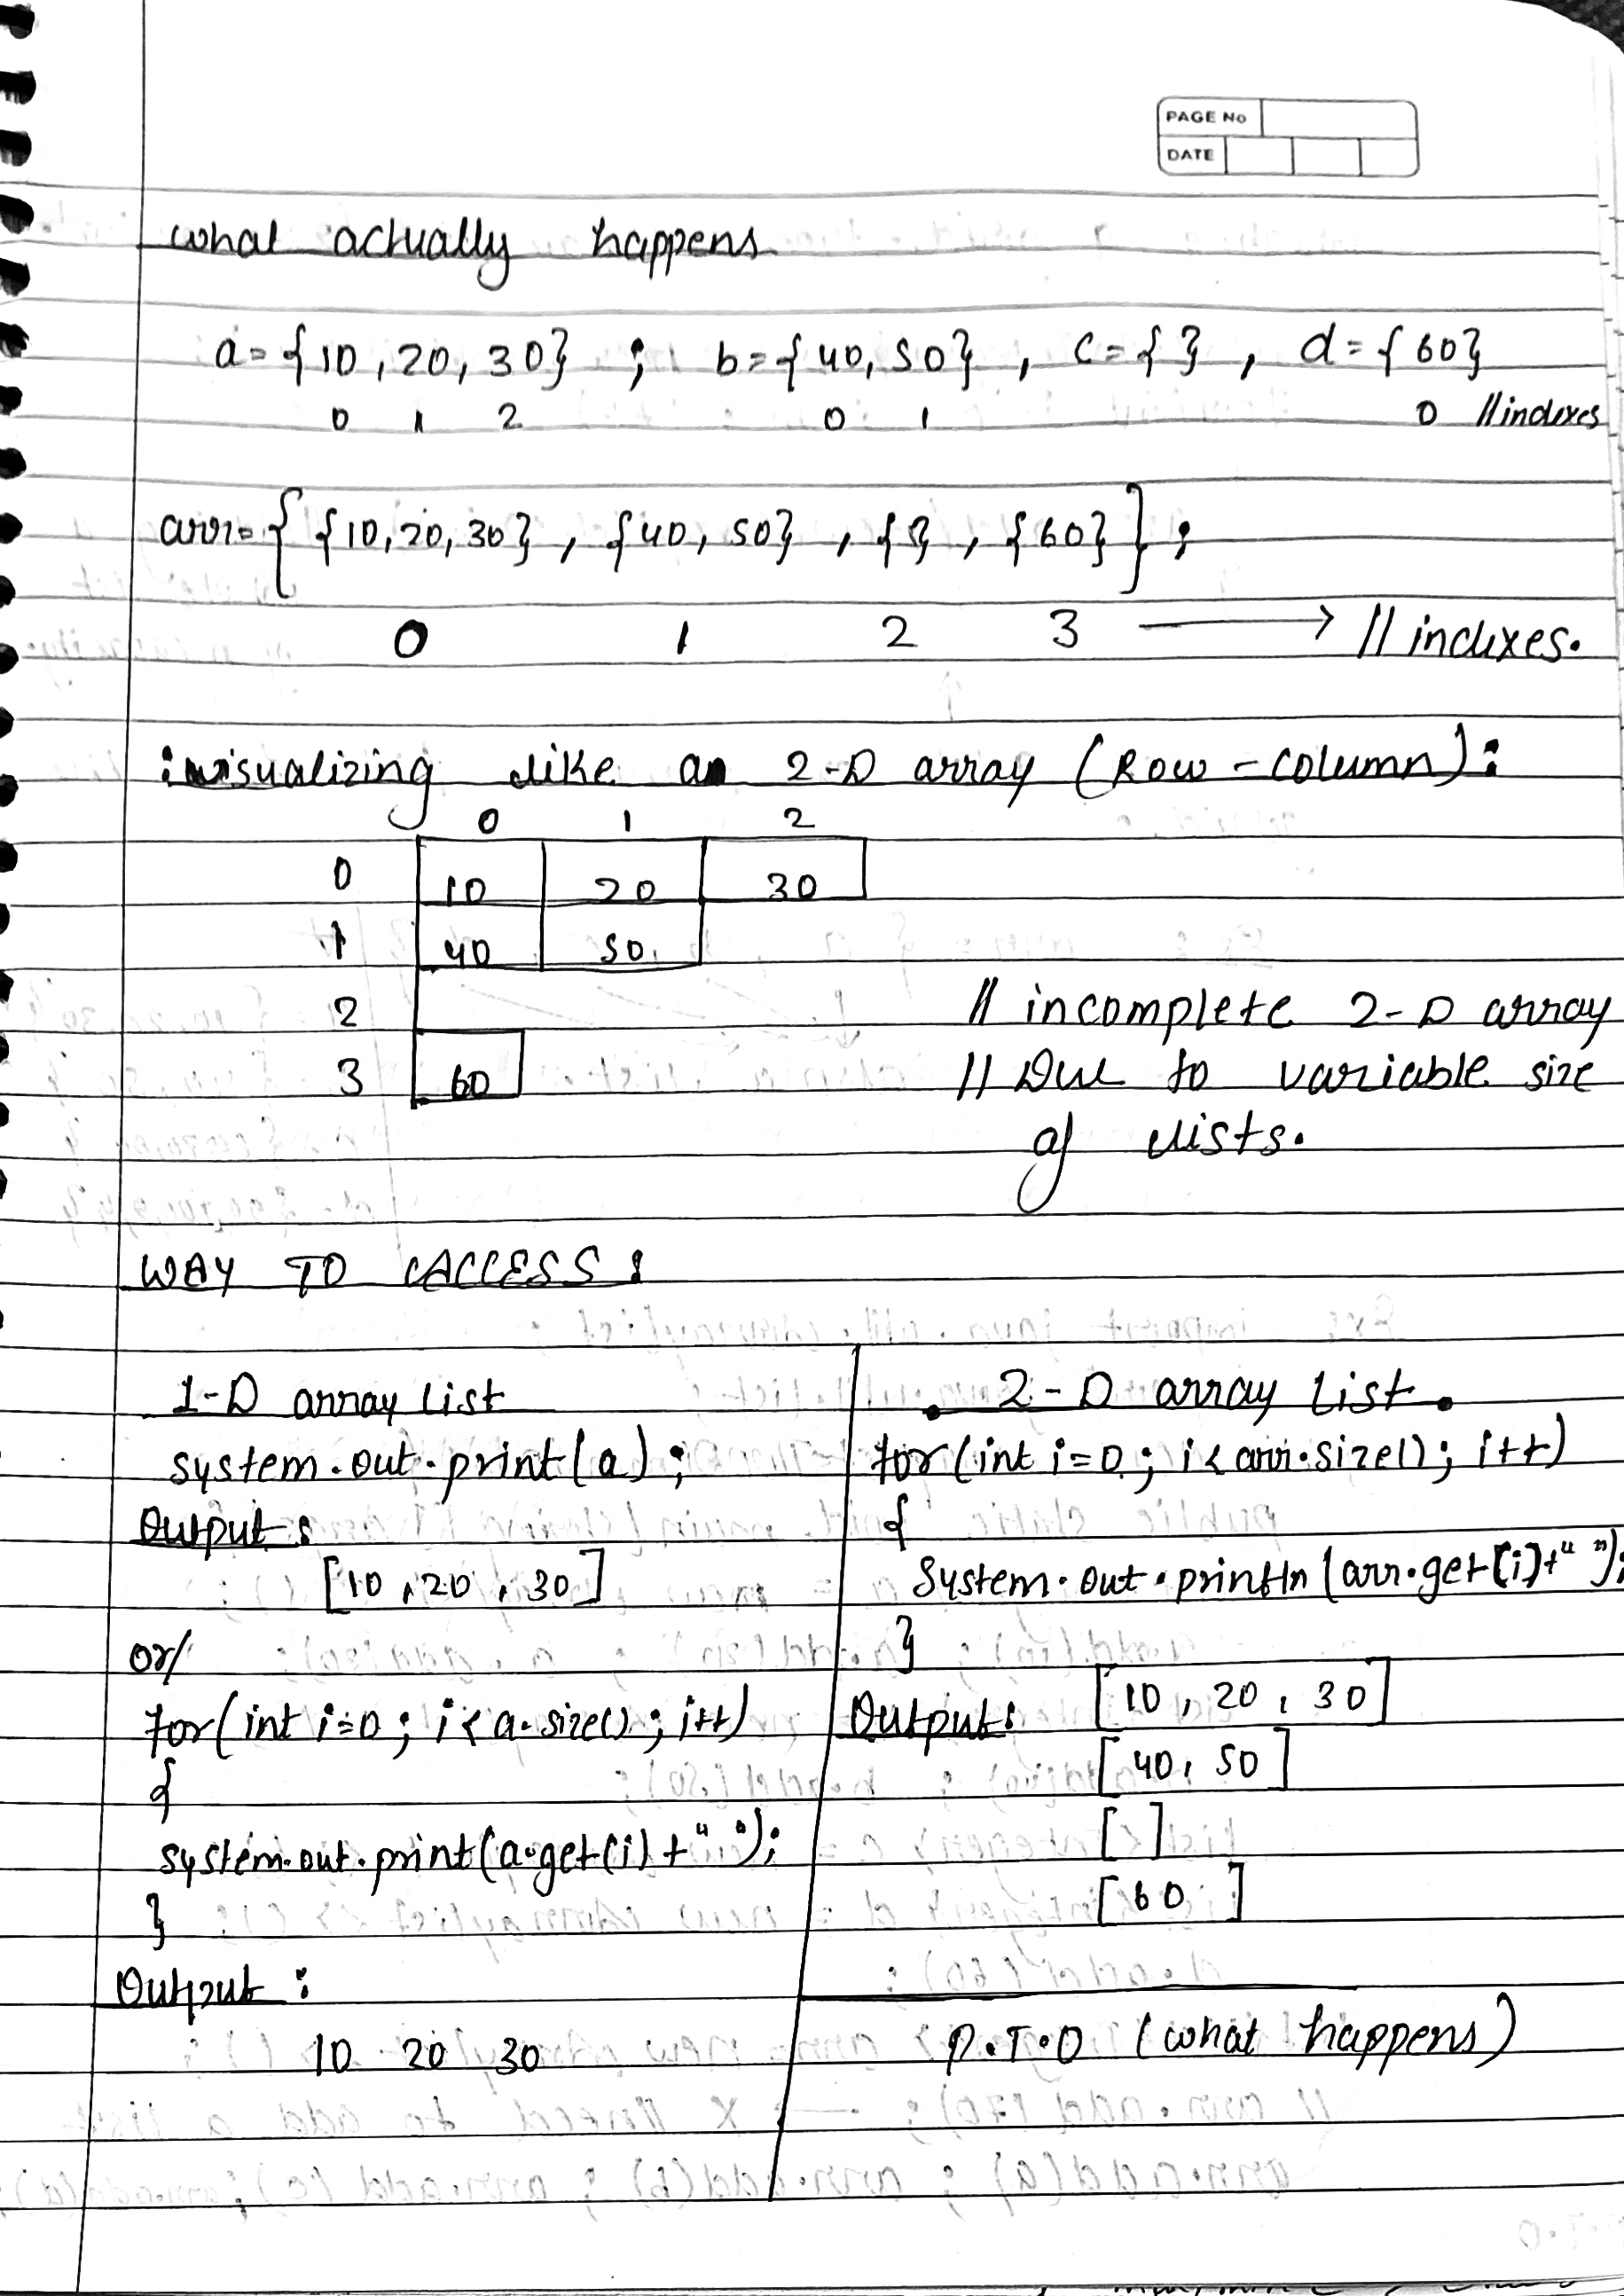 PAGE No
DATE
what actually happens
a={10,20,30} ; b={40,50} , c={ } , d={60}
0 1 2 0 1 0 //indexes
arr={ {10,20,30} , {40,50} , { } , {60} } ;
0 1 2 3 → // indexes.
: visualizing like an 2-D array (Row - column) :
0 1 2
0 10 20 30
1 40 50
2 // incomplete 2-D array
3 60 // Due to variable size
of lists.
WAY TO ACCESS :
1-D array list
system.out.print(a) ;
Output :
[10 , 20 , 30]
or/
for(int i=0 ; i < a.size() ; i++)
{
system.out.print(a.get(i) + " ");
}
Output :
10 20 30
. 2-D array list .
for(int i=0 ; i < arr.size() ; i++)
{
System.out.println (arr.get(i)+" ");
}
Output: [10 , 20 , 30]
[40, 50]
[ ]
[60 ]
P.T.O (what happens)